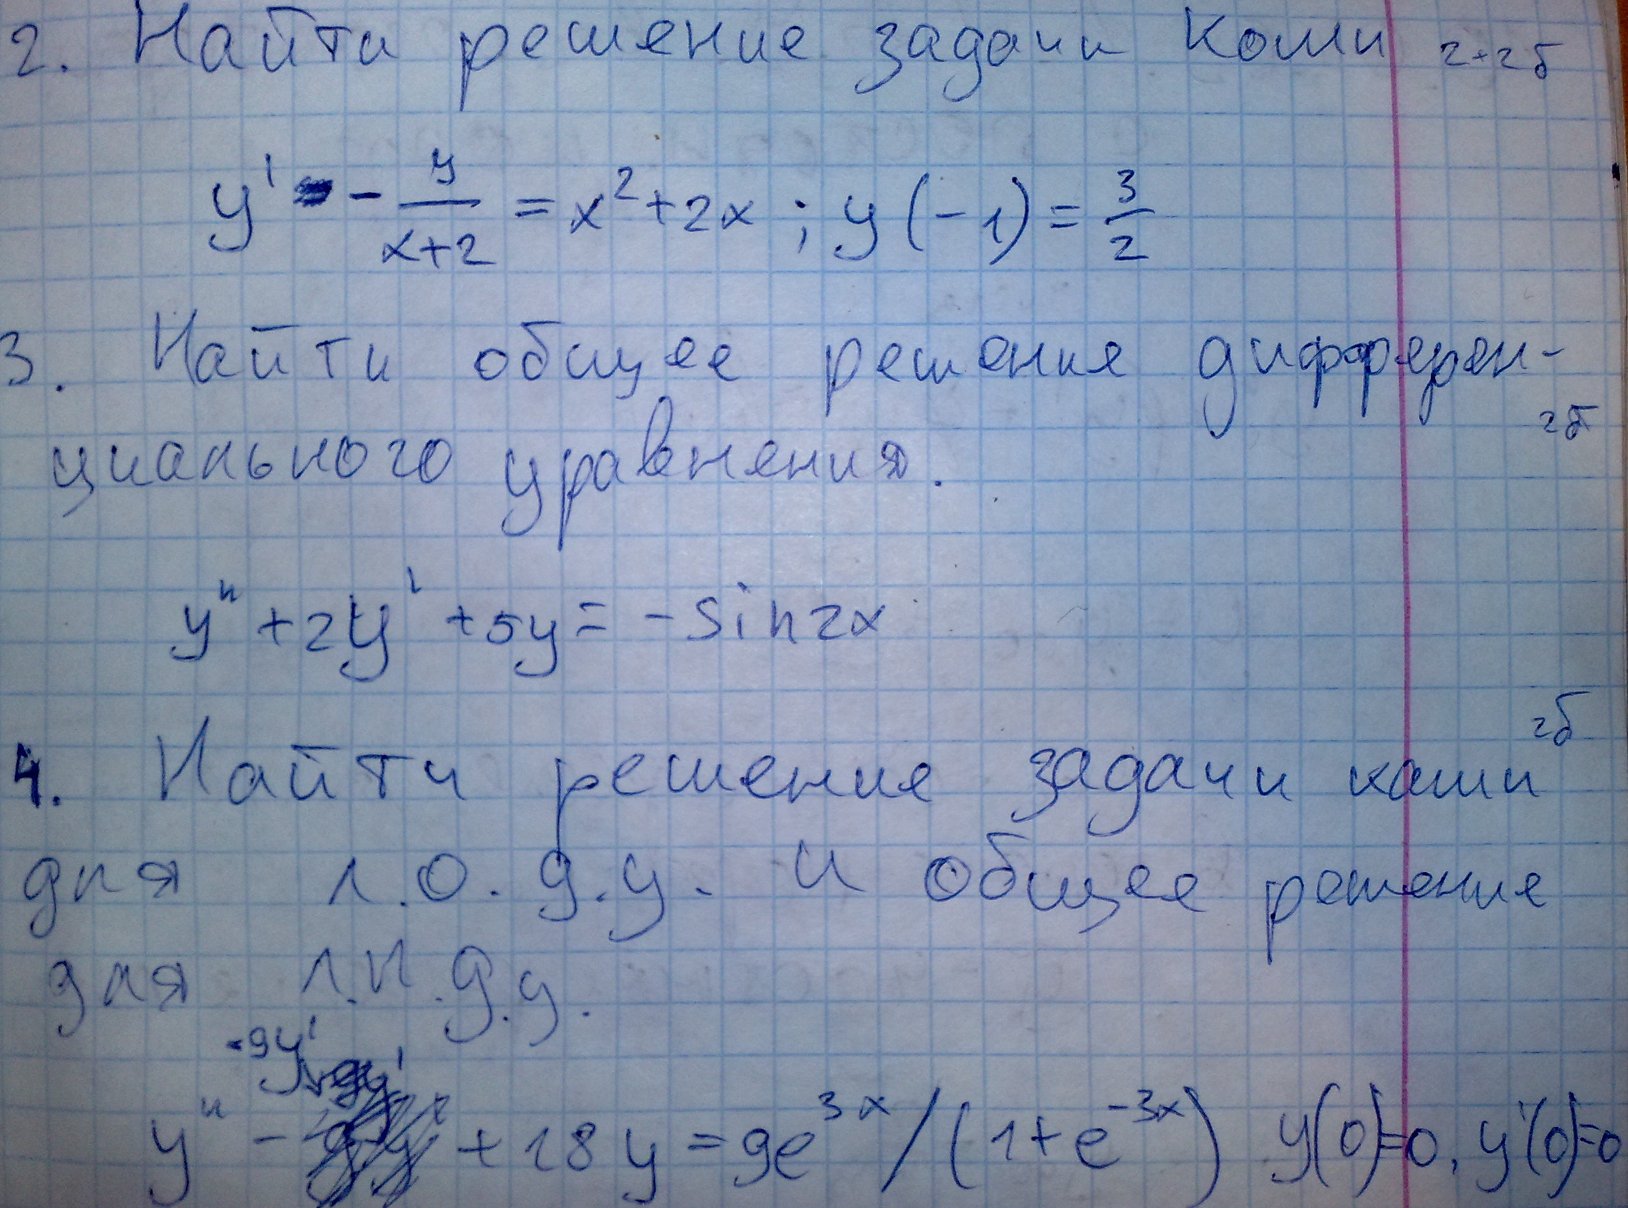 2. Найти решение задачи Коши 2+2б
y' - y/(x+2) = x² + 2x ; y(-1) = 3/2
3. Найти общее решение дифферен-
2б
циального уравнения.
y'' + 2y' + 5y = - sin 2x
2б
4. Найти решение задачи каши
для л.о.д.у. и общее решение
для л.н.д.у.
-9y'
y'' - + 18y = 9e^{3x} / (1+e^{-3x}) y(0)=0, y'(0)=0